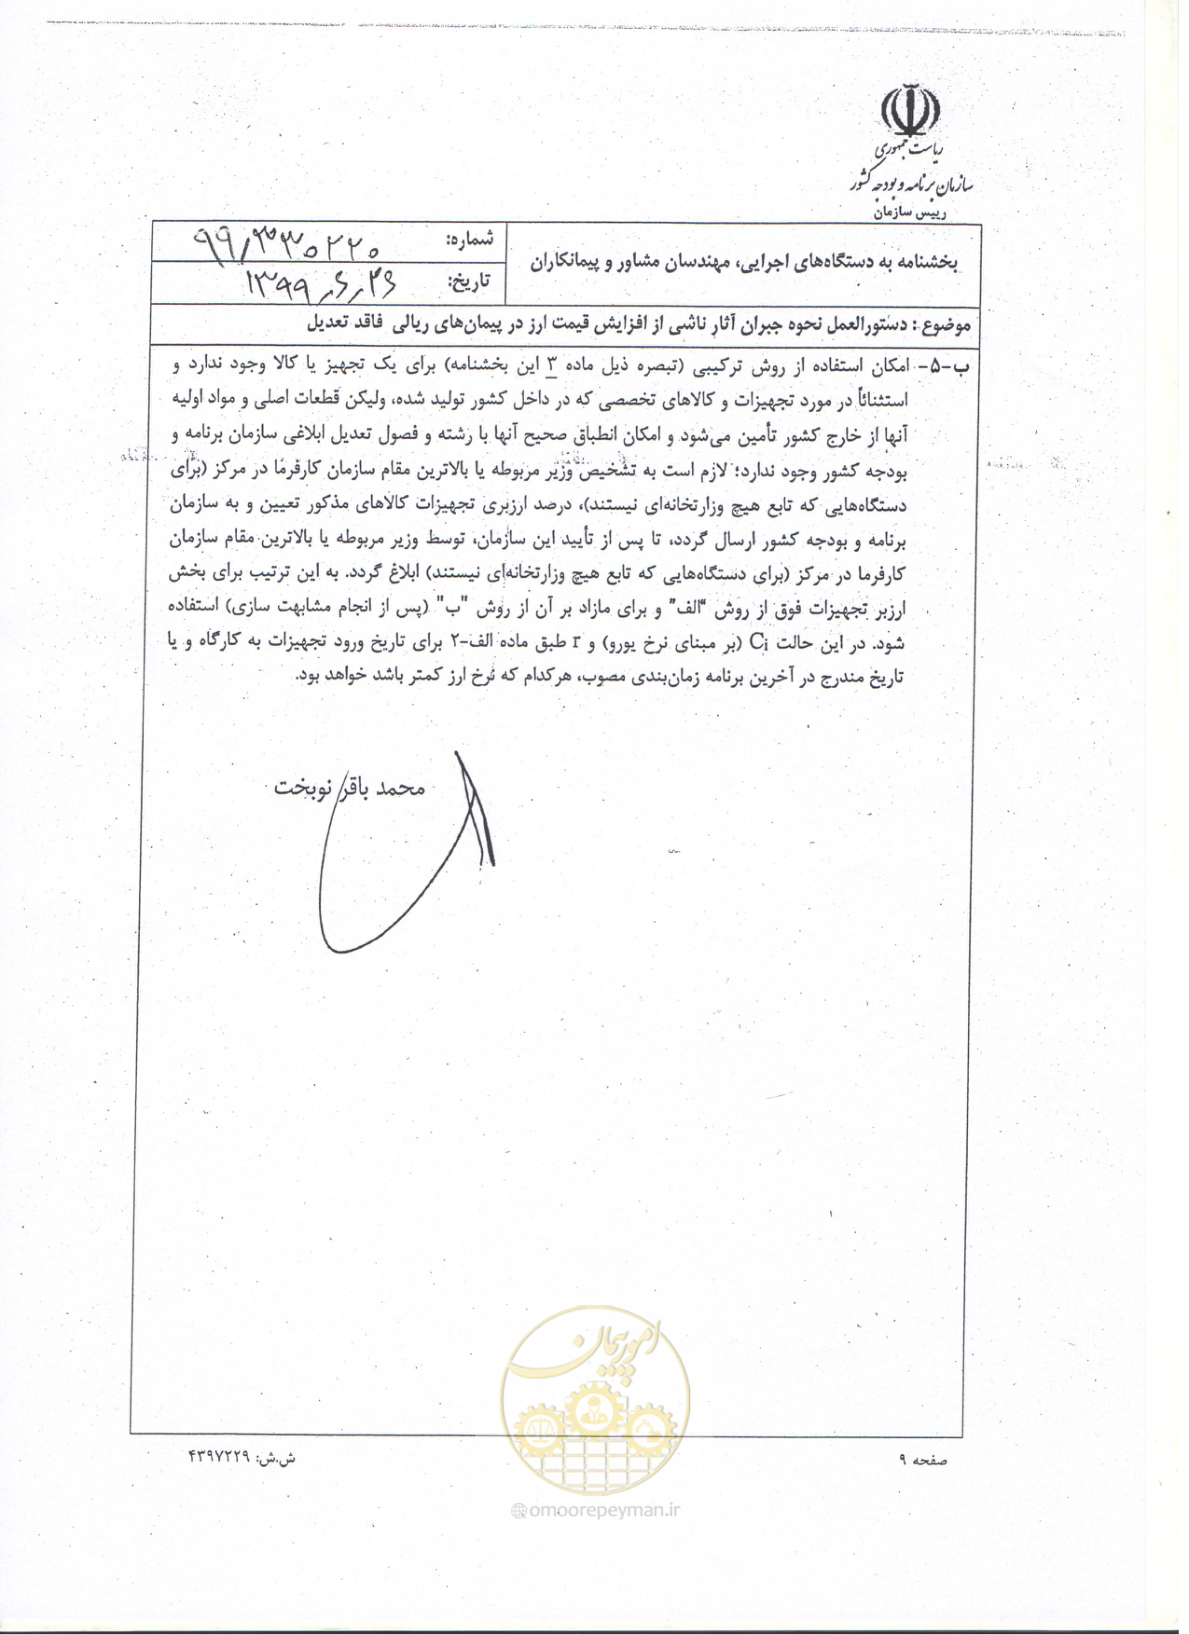 ریاست جمهوری
سازمان برنامه و بودجه کشور
رییس سازمان
بخشنامه به دستگاه‌های اجرایی، مهندسان مشاور و پیمانکاران
شماره: ۹۹/۳۳۰۲۲۰
تاریخ: ۱۳۹۹/۶/۲۶
موضوع: دستورالعمل نحوه جبران آثار ناشی از افزایش قیمت ارز در پیمان‌های ریالی فاقد تعدیل
ب-۵- امکان استفاده از روش ترکیبی (تبصره ذیل ماده ۳ این بخشنامه) برای یک تجهیز یا کالا وجود ندارد و
استثنائاً در مورد تجهیزات و کالاهای تخصصی که در داخل کشور تولید شده، ولیکن قطعات اصلی و مواد اولیه
آنها از خارج کشور تأمین می‌شود و امکان انطباق صحیح آنها با رشته و فصول تعدیل ابلاغی سازمان برنامه و
بودجه کشور وجود ندارد؛ لازم است به تشخیص وزیر مربوطه یا بالاترین مقام سازمان کارفرما در مرکز (برای
دستگاه‌هایی که تابع هیچ وزارتخانه‌ای نیستند)، درصد ارزبری تجهیزات کالاهای مذکور تعیین و به سازمان
برنامه و بودجه کشور ارسال گردد، تا پس از تأیید این سازمان، توسط وزیر مربوطه یا بالاترین مقام سازمان
کارفرما در مرکز (برای دستگاه‌هایی که تابع هیچ وزارتخانه‌ای نیستند) ابلاغ گردد. به این ترتیب برای بخش
ارزبر تجهیزات فوق از روش "الف" و برای مازاد بر آن از روش "ب" (پس از انجام مشابهت سازی) استفاده
شود. در این حالت Ci (بر مبنای نرخ یورو) و r طبق ماده الف-۲ برای تاریخ ورود تجهیزات به کارگاه و یا
تاریخ مندرج در آخرین برنامه زمان‌بندی مصوب، هرکدام که نرخ ارز کمتر باشد خواهد بود.
محمد باقر نوبخت
امور پیمان
صفحه ۹
ش.ش: ۴۳۹۷۲۲۹
@omoorepeyman.ir